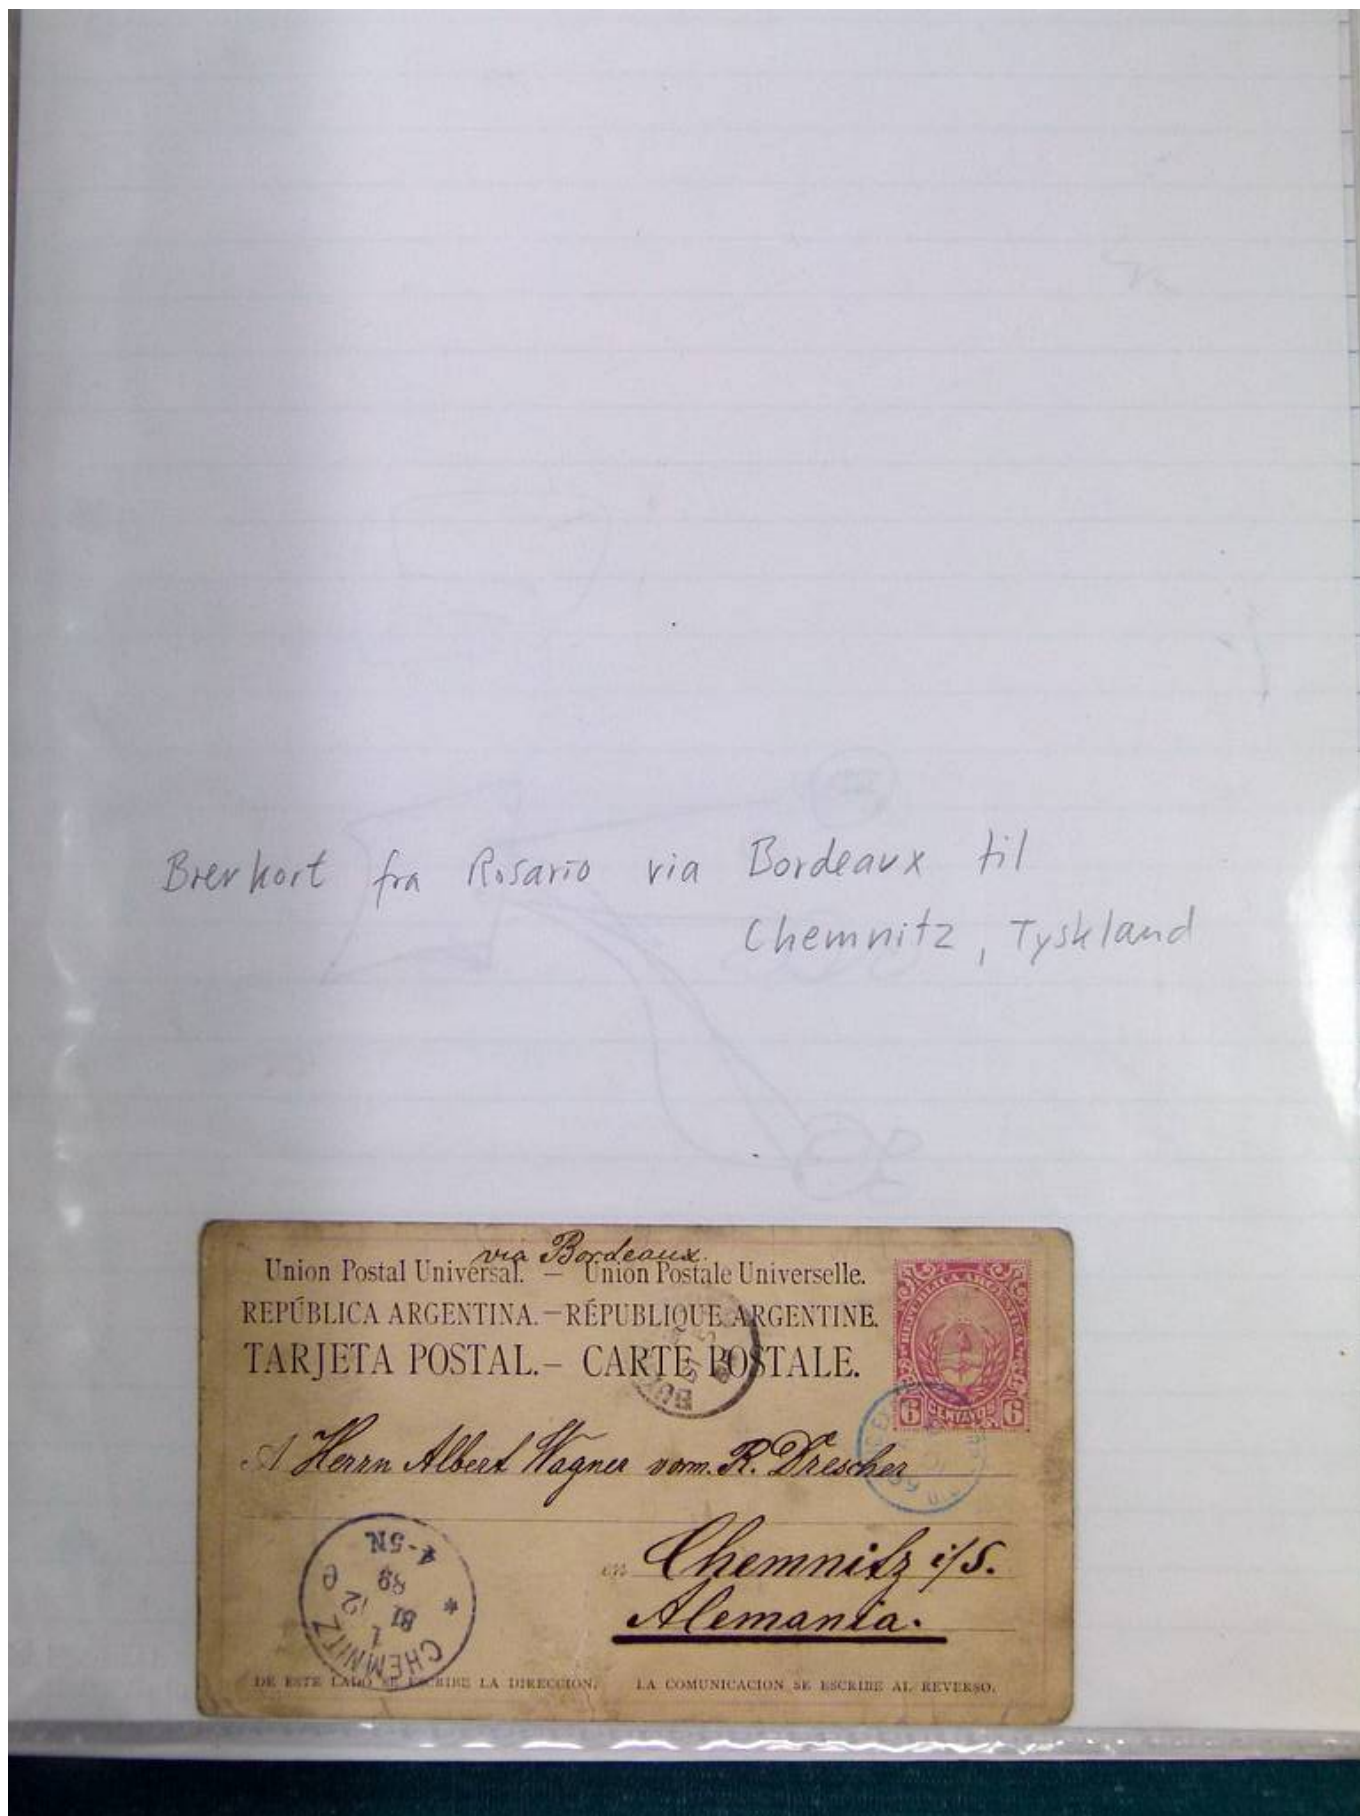 Brevkort fra Rosario via Bordeaux til
Chemnitz, Tyskland
via Bordeaux.
Union Postal Universal. — Union Postale Universelle.
REPÚBLICA ARGENTINA. — RÉPUBLIQUE ARGENTINE.
TARJETA POSTAL. — CARTE POSTALE.
REPUBLICA ARGENTINA
6 CENTAVOS 6
A Herrn Albert Wagner vorm. R. Drescher
en Chemnitz i/S.
Alemania.
CHEMNITZ
1
12 C
89
4-5N
DE ESTE LADO SE ESCRIBE LA DIRECCION. LA COMUNICACION SE ESCRIBE AL REVERSO.